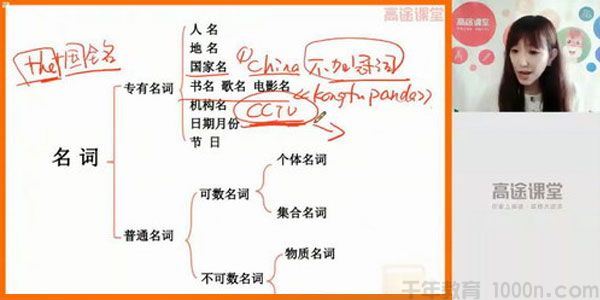 高途课堂
高途课堂
人名
the+国全名
地名
国家名 ① China 不加冠词
专有名词
书名 歌名 电影名 《kongfu panda》
机构名 CCTV
日期月份
节日
名词
个体名词
可数名词
集合名词
普通名词
物质名词
不可数名词
高途课堂
千年教育 1000n.com